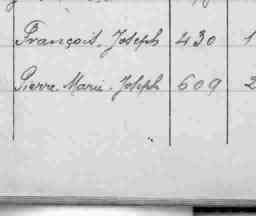 François. Joseph 430 1
Pierre. Marie. Joseph 609 2